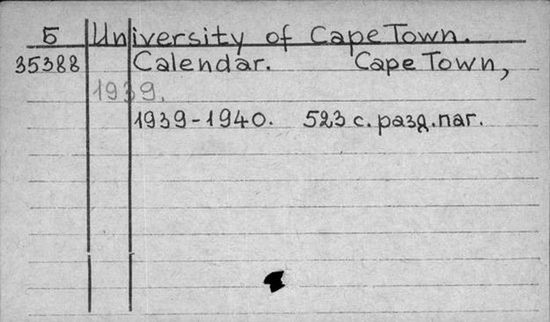 Б University of Cape Town.
35388 Calendar. Cape Town,
1939.
1939-1940. 523 с. разд. паг.